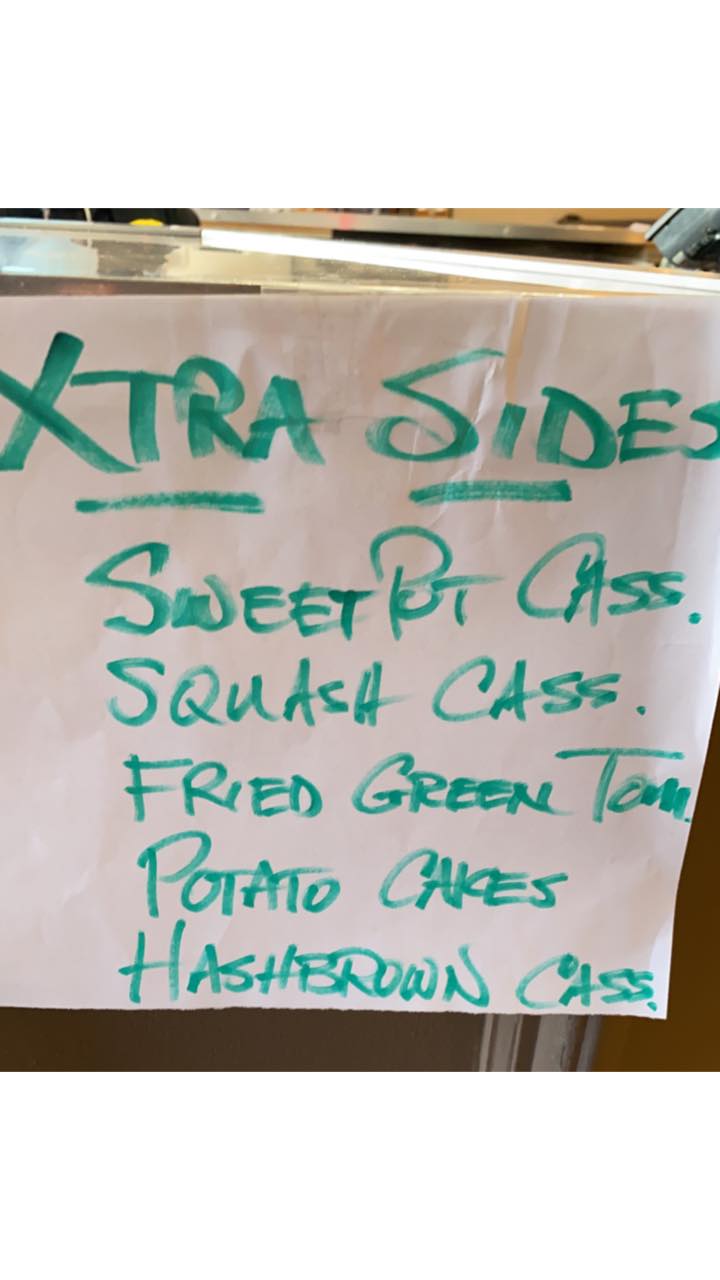 XTRA SIDES
SWEET POT CASS.
SQUASH CASS.
FRIED GREEN Tom.
POTATO CAKES
HASHBROWN CASS.